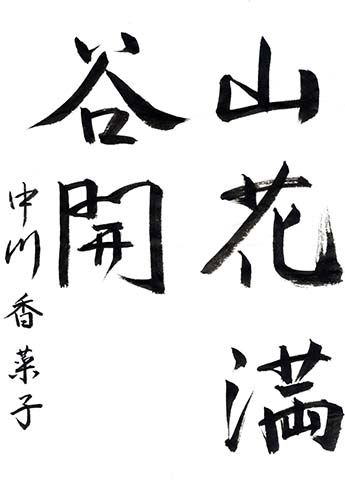 山花満
谷開
中川香菜子